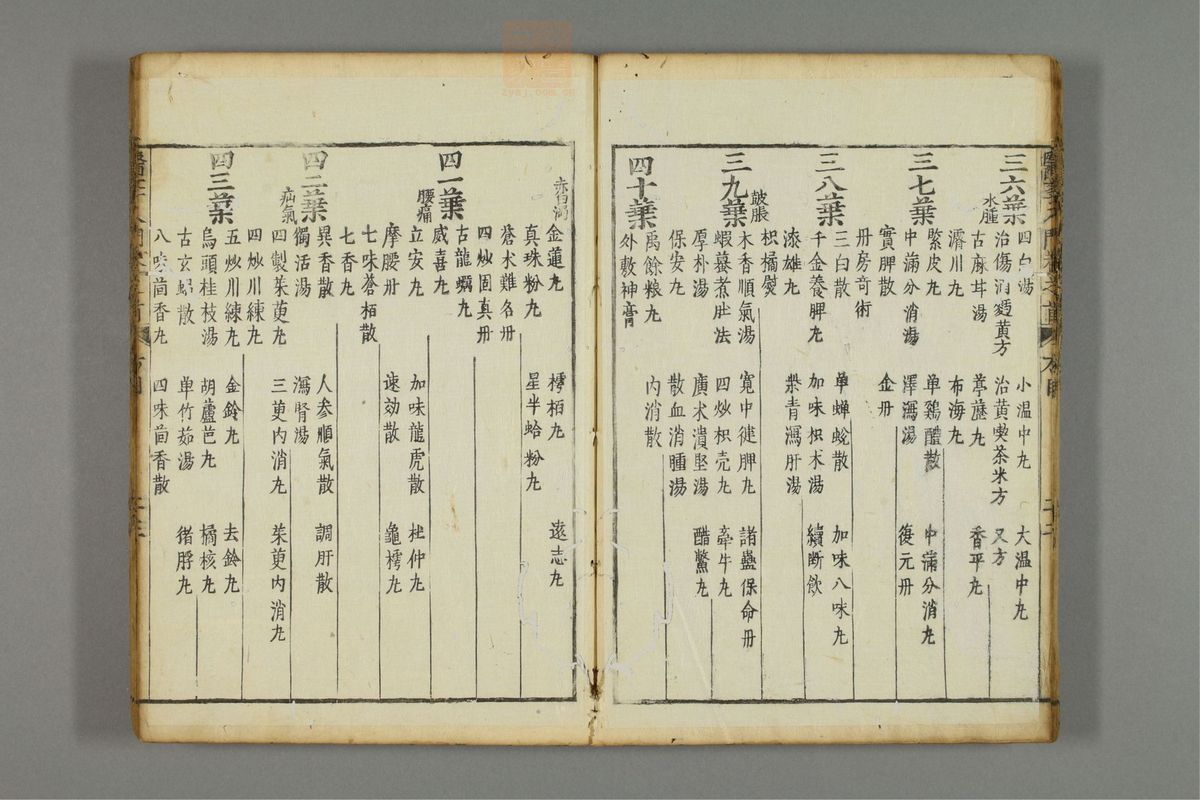 三六葉
水腫
四白湯　小温中𠃵　大温中𠃵
治傷　黄方　治黄喫茶米方　又方
古麻　湯　葶藶𠃵　香平𠃵
濬川𠃵　布海𠃵
三七葉
緊皮𠃵
中滿分消湯　单鷄醴散　中滿分消𠃵
澤瀉湯　復元丹
實脾散　金丹
丹房奇術
三八葉
三白散　单蝉蜕散　加味八味𠃵
千金養脾𠃵　加味枳术湯　續断飲
漆雄𠃵　柴青瀉肝湯
枳橘熨
三九葉
鼓脹
木香順氣湯　寛中健脾𠃵　諸蠱保命丹
蝦蟇煮肚法　四炒枳壳𠃵　牽牛𠃵
厚朴湯　廣术潰堅湯　醋鱉𠃵
保安𠃵　散血消腫湯
四十葉
禹餘粮𠃵　内消散
外敷神膏
赤白濁
金蓮𠃵　樗栢𠃵　遠志𠃵
真珠粉𠃵　星半蛤粉𠃵
蒼术難名丹
四炒固真丹
四一葉
古龍蠣𠃵
威喜𠃵
腰痛
立安𠃵　加味龍虎散　杜仲𠃵
摩腰丹　速効散　龜樗𠃵
七味蒼栢散
七香𠃵
四二葉
異香散　人参順氣散　調肝散
獨活湯　瀉腎湯
疝氣
四製茱萸𠃵　三萸内消𠃵　茱萸内消𠃵
四炒川練𠃵
四三葉
五炒川練𠃵　金鈴𠃵　去鈴𠃵
烏頭桂枝湯　胡蘆芭𠃵　橘核𠃵
古玄蚓散　单竹茹湯　猪脬𠃵
八味茴香𠃵　四味茴香散
zysj.com.cn